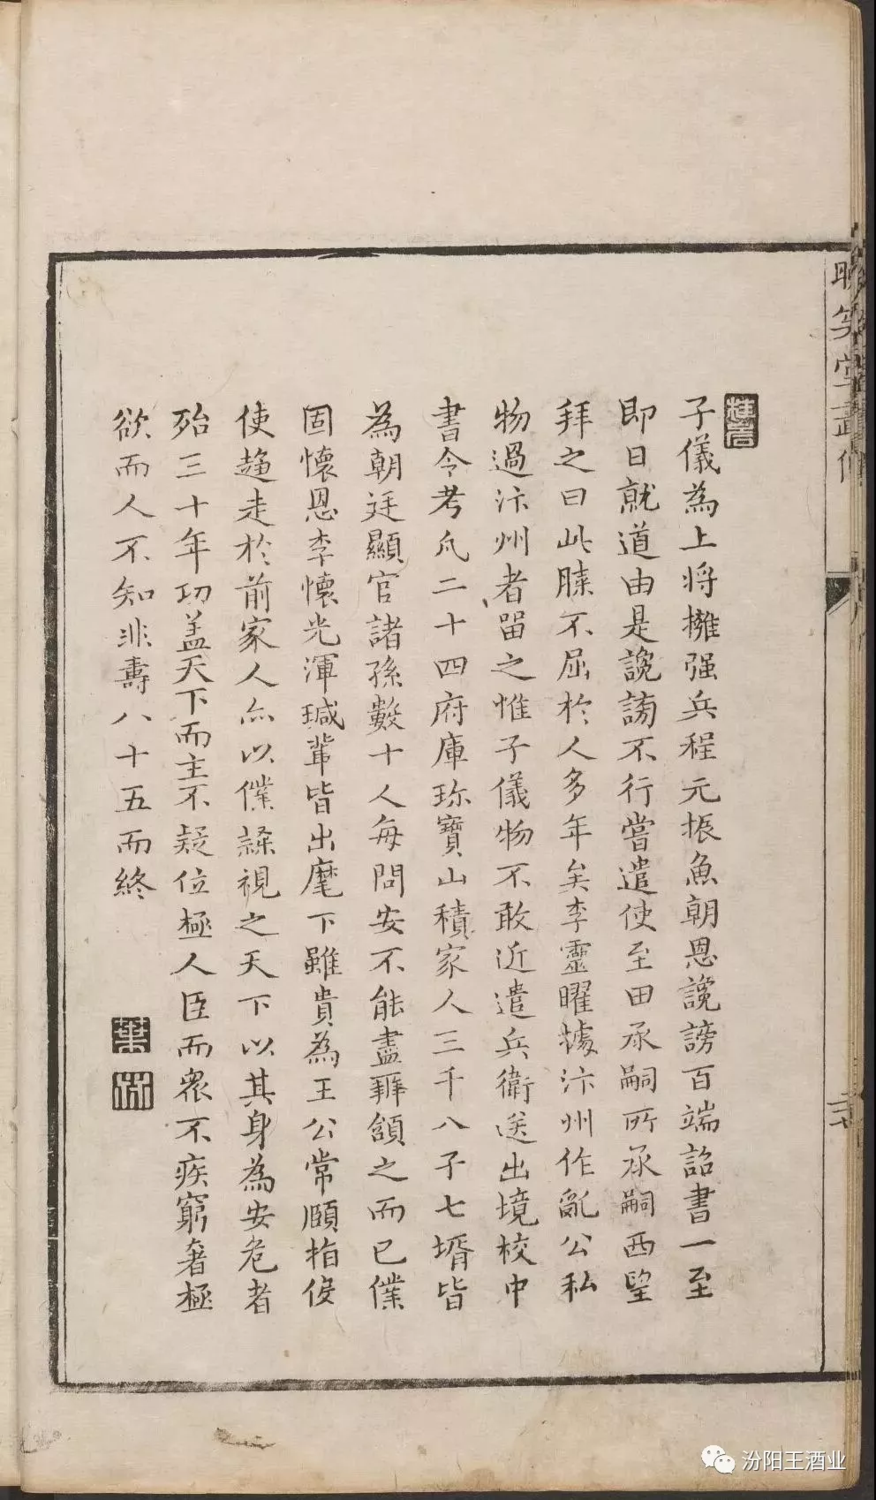 晚笑堂畫傳
子儀為上将擁强兵程元振魚朝恩讒謗百端詔書一至
即日就道由是讒謗不行嘗遣使至田承嗣所承嗣西望
拜之曰此膝不屈於人多年矣李靈曜據汴州作亂公私
物過汴州者畱之惟子儀物不敢近遣兵衛送出境校中
書令考凡二十四府庫珎寶山積家人三千八子七壻皆
為朝廷顯官諸孫數十人每問安不能盡辨頷之而已僕
固懷恩李懷光渾瑊輩皆出麾下雖貴為王公常頤指役
使趨走於前家人亦以僕隸視之天下以其身為安危者
殆三十年功盖天下而主不疑位極人臣而衆不疾窮奢極
欲而人不知非壽八十五而終
汾阳王酒业